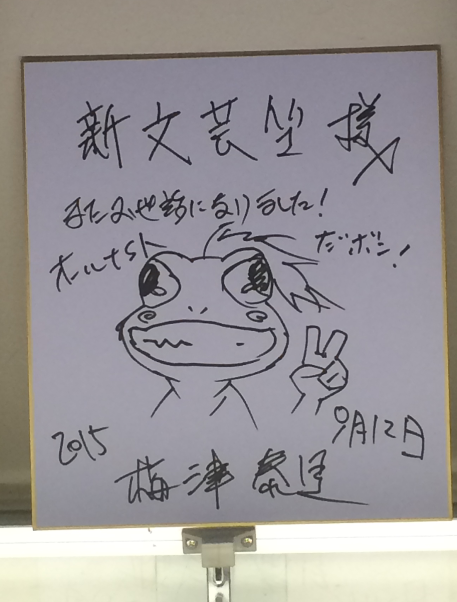 新文芸坐様
またお世話になりました!
オールナイト
だボン!
2015
9月12日
梅津泰臣